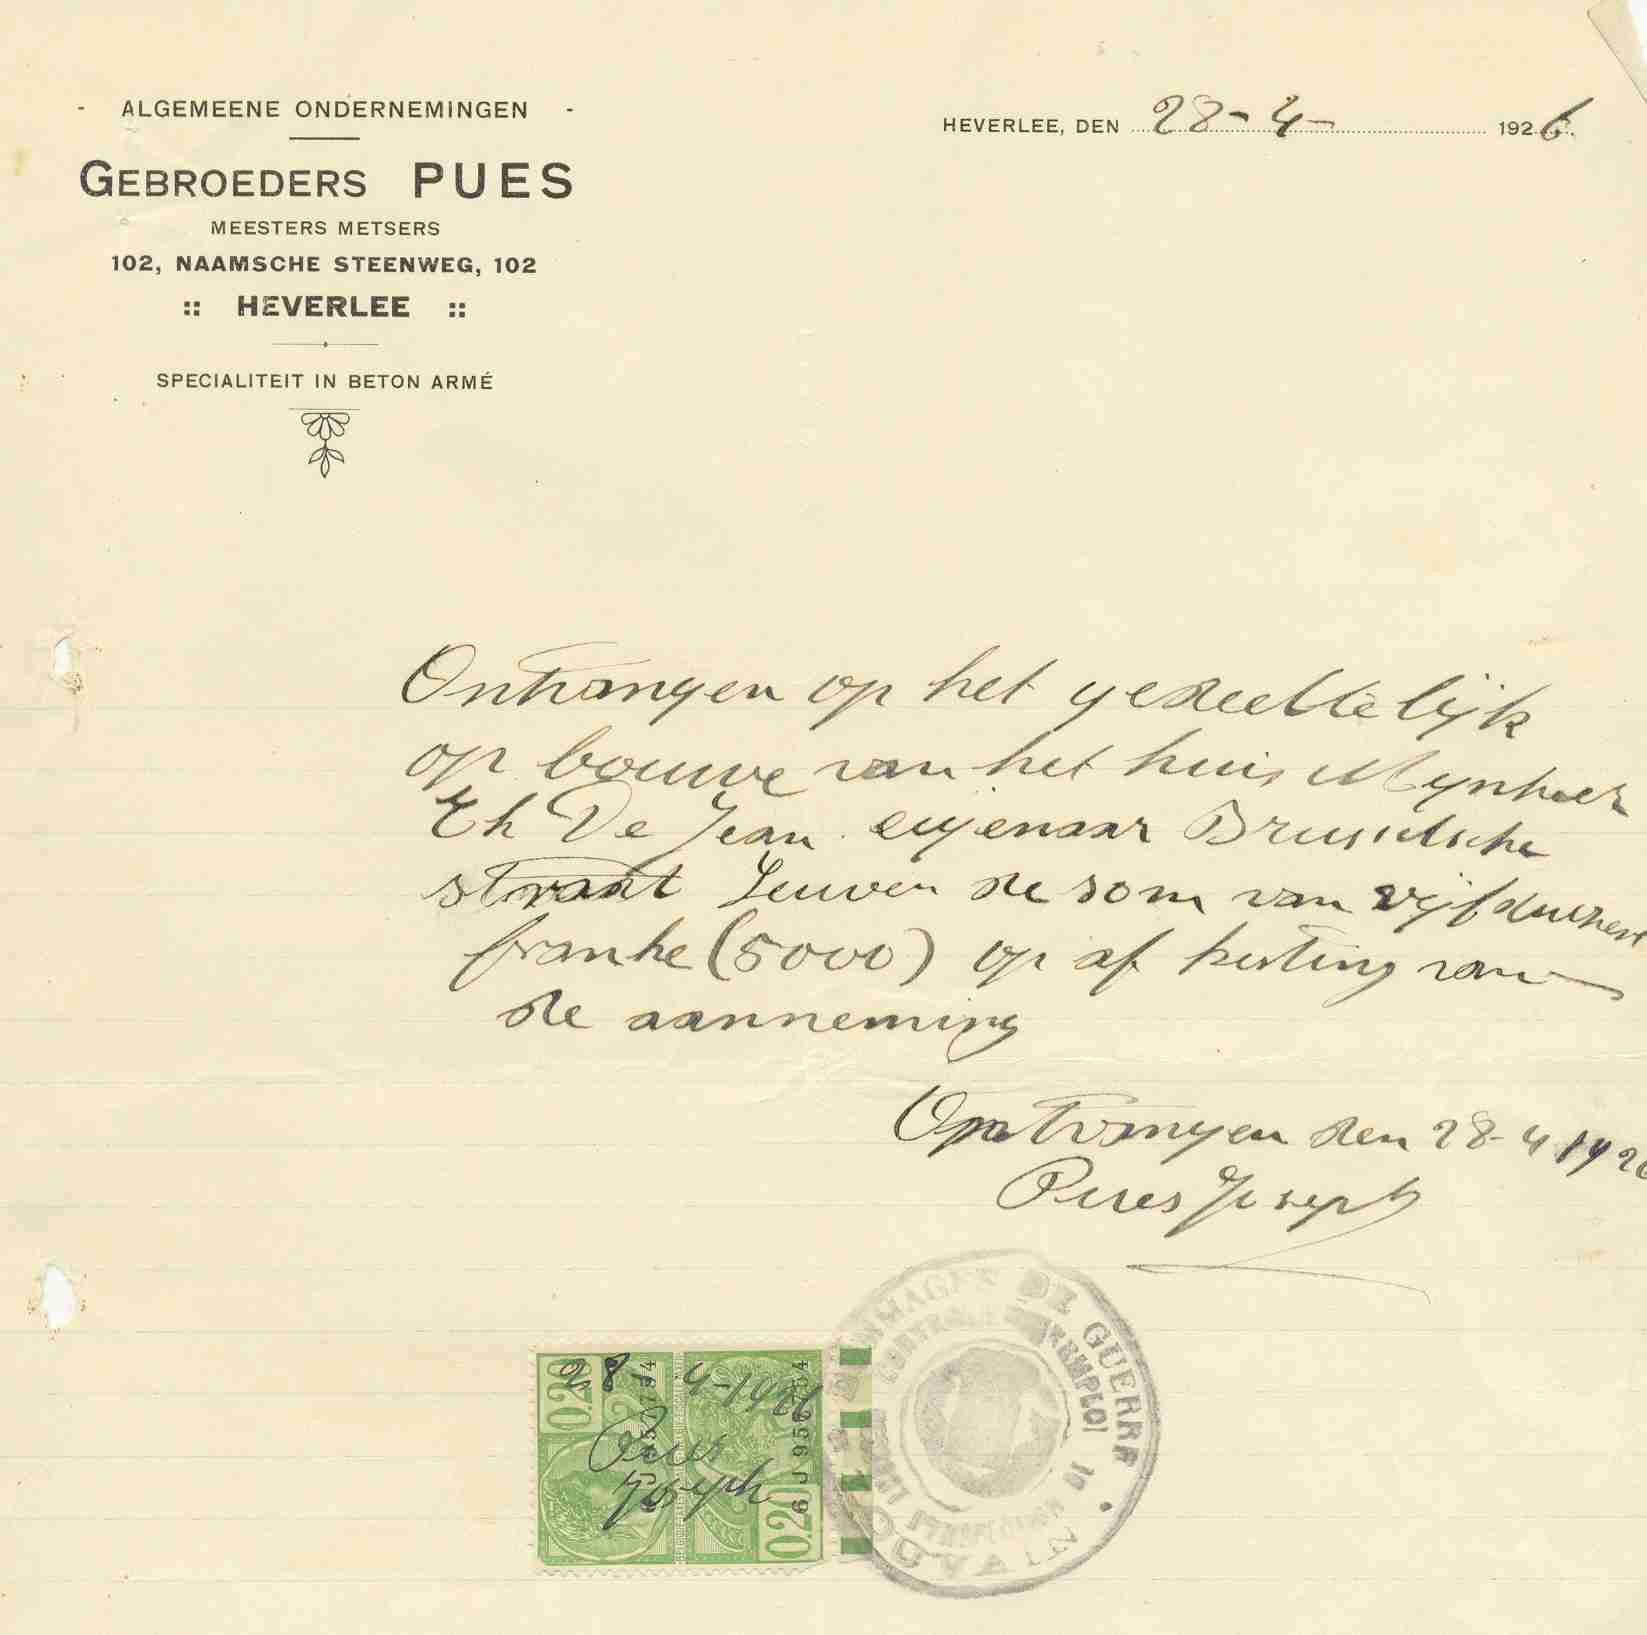 - ALGEMEENE ONDERNEMINGEN -
GEBROEDERS PUES
MEESTERS METSERS
102, NAAMSCHE STEENWEG, 102
:: HEVERLEE ::
SPECIALITEIT IN BETON ARMÉ
HEVERLEE, DEN 28-4- 1926.
Ontvangen op het gedeeltelijk
op bouwe van het huis Mynheer
De Jean eigenaar Brusselsche
straat Leuven de som van vijfduizent
franke (5000) op af korting van
de aanneming
Ontvangen den 28-4 1926
Pues Joseph
28-4-1926
Pues
Joseph
0.20
0.20
DOMMAGES DE GUERRE
CONTROLE REMPLOI
LOUVAIN